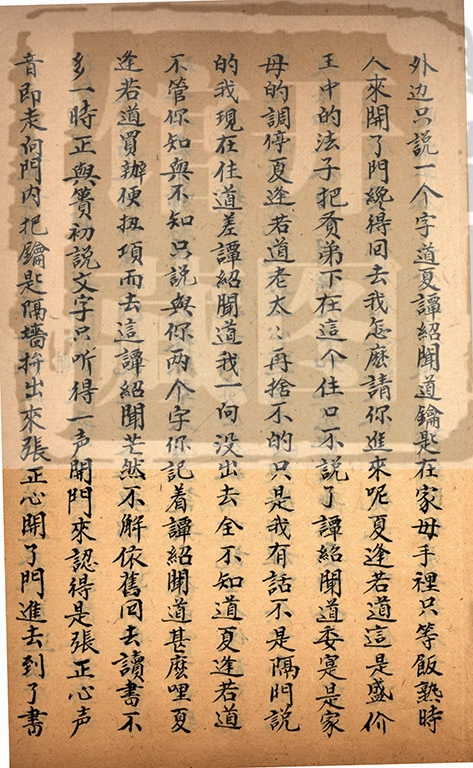 外边只説一个字道夏譚紹聞道鑰匙在家母手裡只等飯熟時
人來開了門纔得回去我怎麽請你進來呢夏逢若道這是盛价
王中的法子把賢弟下在這个住口不説了譚紹聞道委寔是家
母的調停夏逢若道老太太再捨不的只是我有話不是隔門説
的我現在住道差譚紹聞道我一向没出去全不知道夏逢若道
不管你知與不知只説與你两个字你記着譚紹聞道甚麽哩夏
逢若道買辦便扭項而去這譚紹聞茫然不解依舊回去讀書不
多一時正與簣初説文字只听得一声開門來認得是張正心声
音即走向門内把鑰匙隔墻拚出來張正心開了門進去到了書